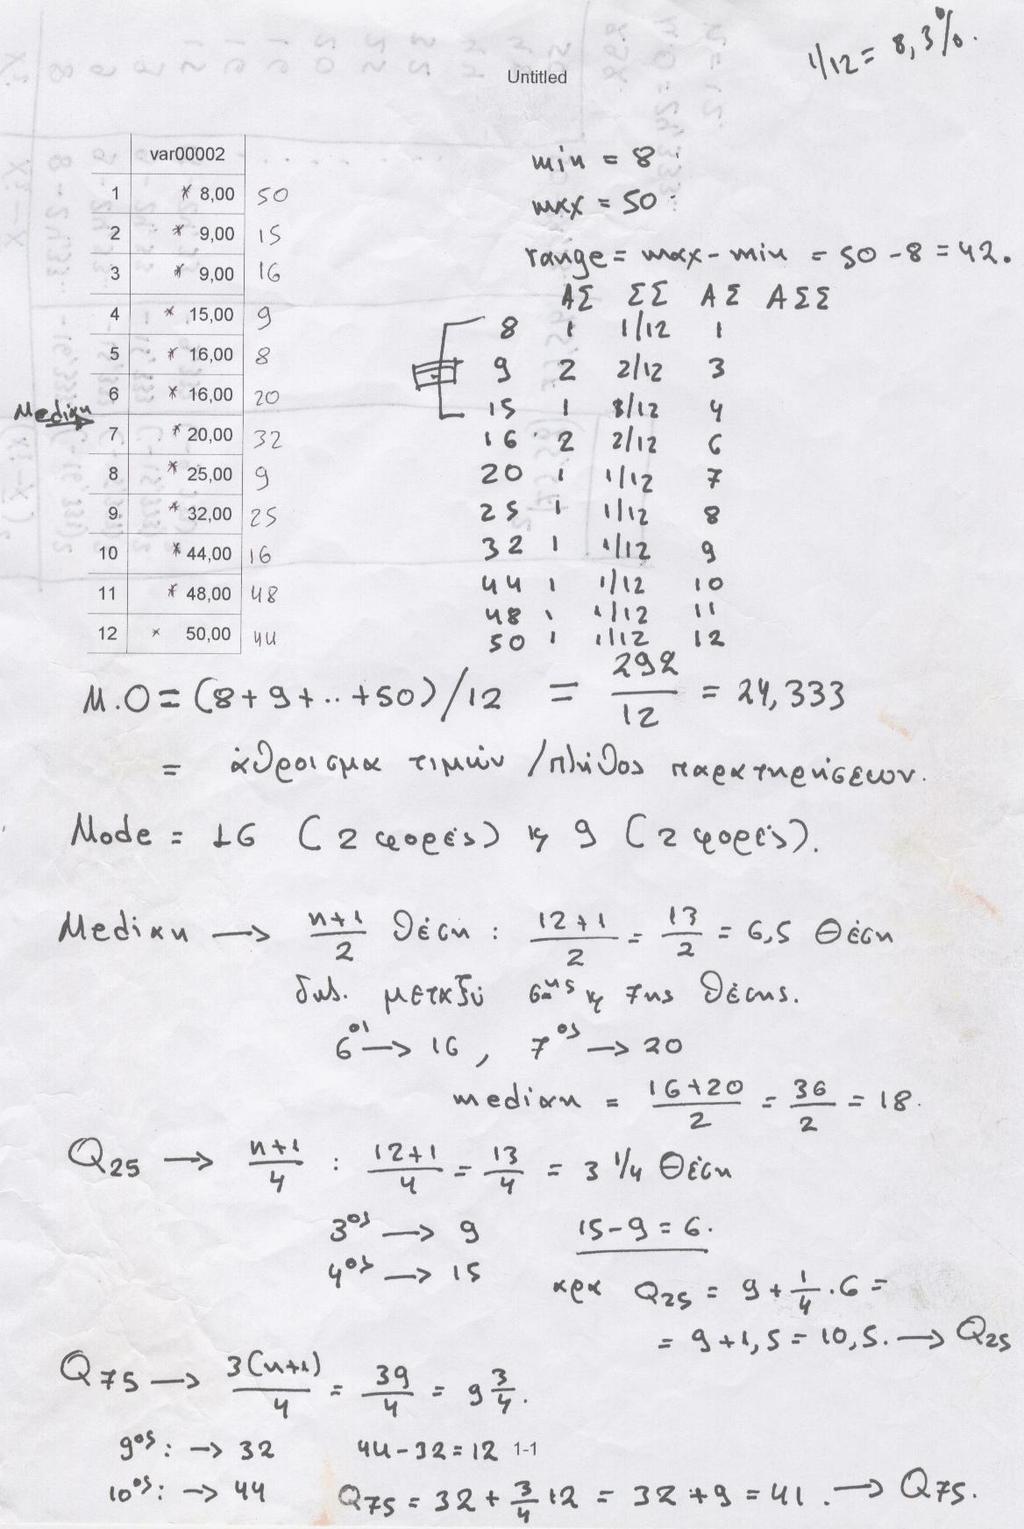 1/12 = 8,3%.
Untitled
var00002
1 * 8,00 50
2 * 9,00 15
3 * 9,00 16
4 * 15,00 9
5 * 16,00 8
6 * 16,00 20
Median
7 * 20,00 32
8 * 25,00 9
9 * 32,00 25
10 * 44,00 16
11 * 48,00 48
12 * 50,00 44
min = 8
max = 50
range = max - min = 50 - 8 = 42.
ΑΣ ΣΣ ΑΣ ΑΣΣ
8 1 1/12 1
9 2 2/12 3
15 1 /12 4
16 2 2/12 6
20 1 1/12 7
25 1 1/12 8
32 1 1/12 9
44 1 1/12 10
48 1 1/12 11
50 1 1/12 12
Μ.Ο = (8+9+..+50)/12 = 292/12 = 24,333
= άθροισμα τιμών / πλήθος παρατηρήσεων.
Mode = 16 (2 φορές) κ 9 (2 φορές).
Median → n+1/2 θέση : 12+1/2 = 13/2 = 6,5 θέση
δηλ. μεταξύ 6ης κ 7ης θέσης.
6ος → 16, 7ος → 20
median = 16+20/2 = 36/2 = 18.
Q25 → n+1/4 : 12+1/4 = 13/4 = 3 1/4 θέση
3ος → 9 15-9 = 6.
4ος → 15 αρα Q25 = 9 + 1/4 . 6 =
= 9+1,5 = 10,5. → Q25
Q75 → 3(n+1)/4 = 39/4 = 9 3/4.
9ος: → 32 44-32 = 12 1-1
10ος: → 44 Q75 = 32 + 3/4 12 = 32+9 = 41. → Q75.